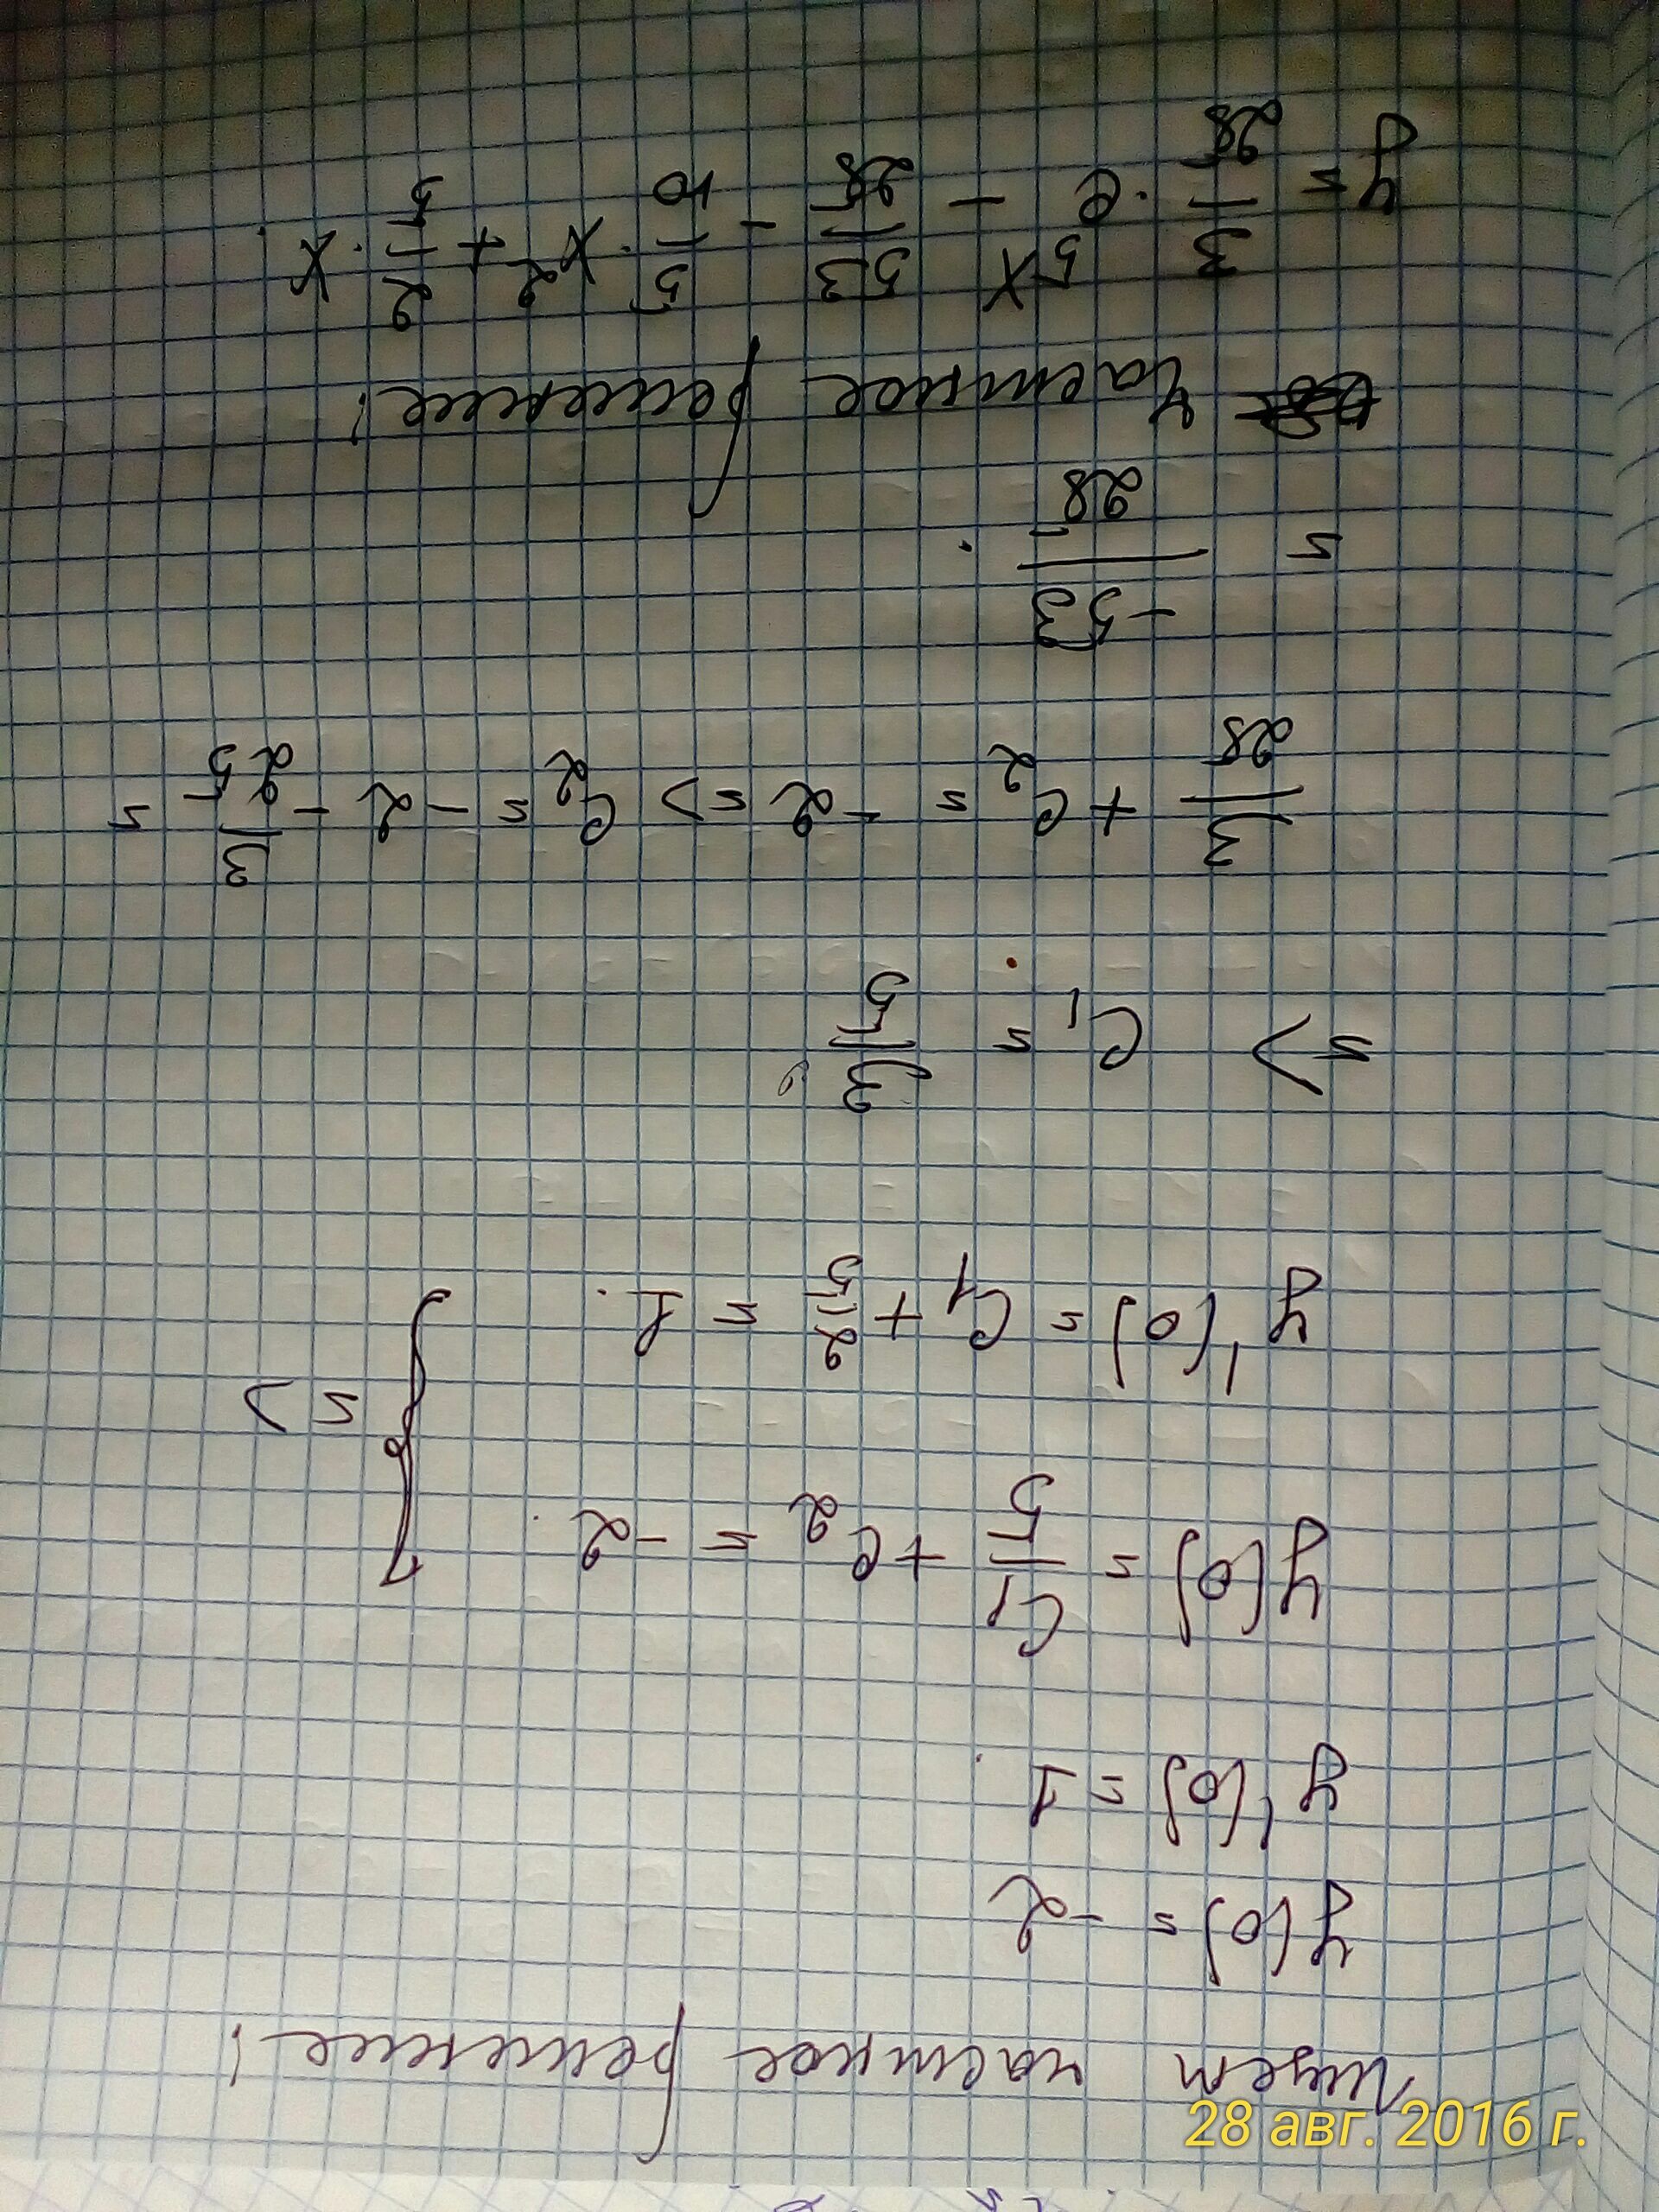 Ищем частное решение:
y(0) = -2
y'(0) = 1.
y(0) = C₁/5 + C₂ = -2.
y'(0) = C₁ + 2/5 = 1.
} =>
=> C₁ = 3/5
3/25 + C₂ = -2 => C₂ = -2 - 3/25 =
= -53/25.
Частное решение:
y = 3/25 · e^5x - 53/25 - 5/10 · x² + 2/5 · x.
28 авг. 2016 г.